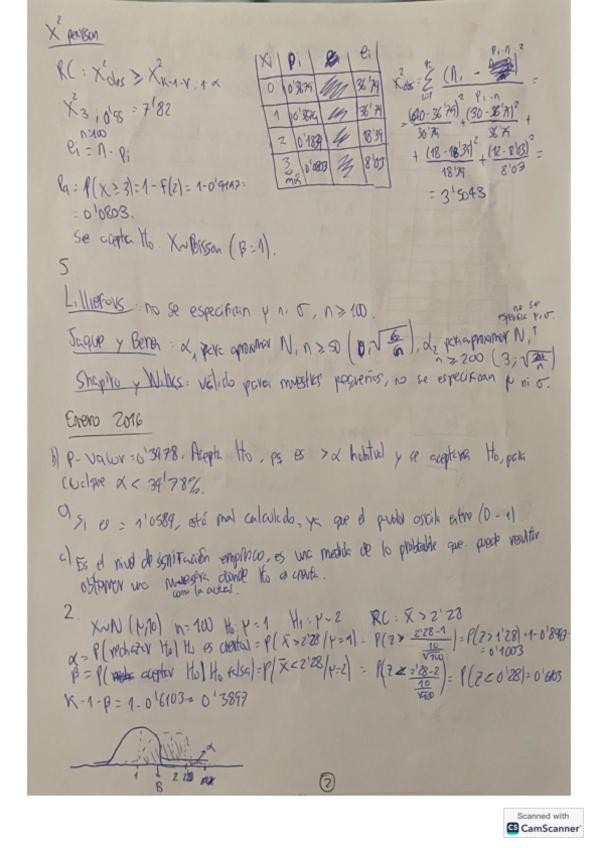 X² pearson
RC: X²obs ≥ X²K-1-r, 1-α
X²3, 0'95 = 7'82
n=100
ei = n · pi
P4 = P(X≥3) = 1 - F(2) = 1 - 0'9197 =
= 0'0803.
Se acepta H0. X~Poisson (β=1).
Xi pi ei
0 0'3679 36'79
1 0'3679 36'79
2 0'1839 18'39
3 más 0'0803 8'03
X²obs = Σ (ni - pi·n)² / pi·n =
= (40-36'79)²/36'79 + (30-36'79)²/36'79 +
+ (18-18'39)²/18'39 + (12-8'03)²/8'03 =
= 3'5043
5
Lilliefors: no se especifican μ ni σ, n ≥ 100.
no se especifica μ, σ
Jaque y Bera: α1 para aproximar N, n ≥ 50 (0, √6/n), α2 para aproximar N, n ≥ 200 (3, √24/n)
Shapiro y Wilks: válido para muestras pequeñas, no se especifican μ ni σ.
Enero 2016
b) P-valor = 0'3978. Acepta H0, es > α habitual y se aceptaría H0, para
α < 39'78%.
a) Si es = 1'0589, está mal calculado, ya que el p-valor oscila entre (0-1)
c) Es el nivel de significación empírico, es una medida de lo probable que puede resultar
obtener una muestra donde H0 es cierta.
como la actual
2.
X~N (μ, 10) n=100 H0: μ=1 H1: μ=2 RC: x̄ > 2'28
α = P(rechazar H0 | H0 es cierta) = P(x̄ > 2'28 / μ=1) = P(Z > 2'28-1 / 10/√100) = P(Z > 1'28) = 1-0'8997 =
= 0'1003
β = P(aceptar H0 | H0 falsa) = P(x̄ < 2'28 / μ=2) = P(Z < 2'28-2 / 10/√100) = P(Z < 0'28) = 0'6103
K = 1-β = 1-0'6103 = 0'3897
1 2 α
β
2
Scanned with
CS CamScanner